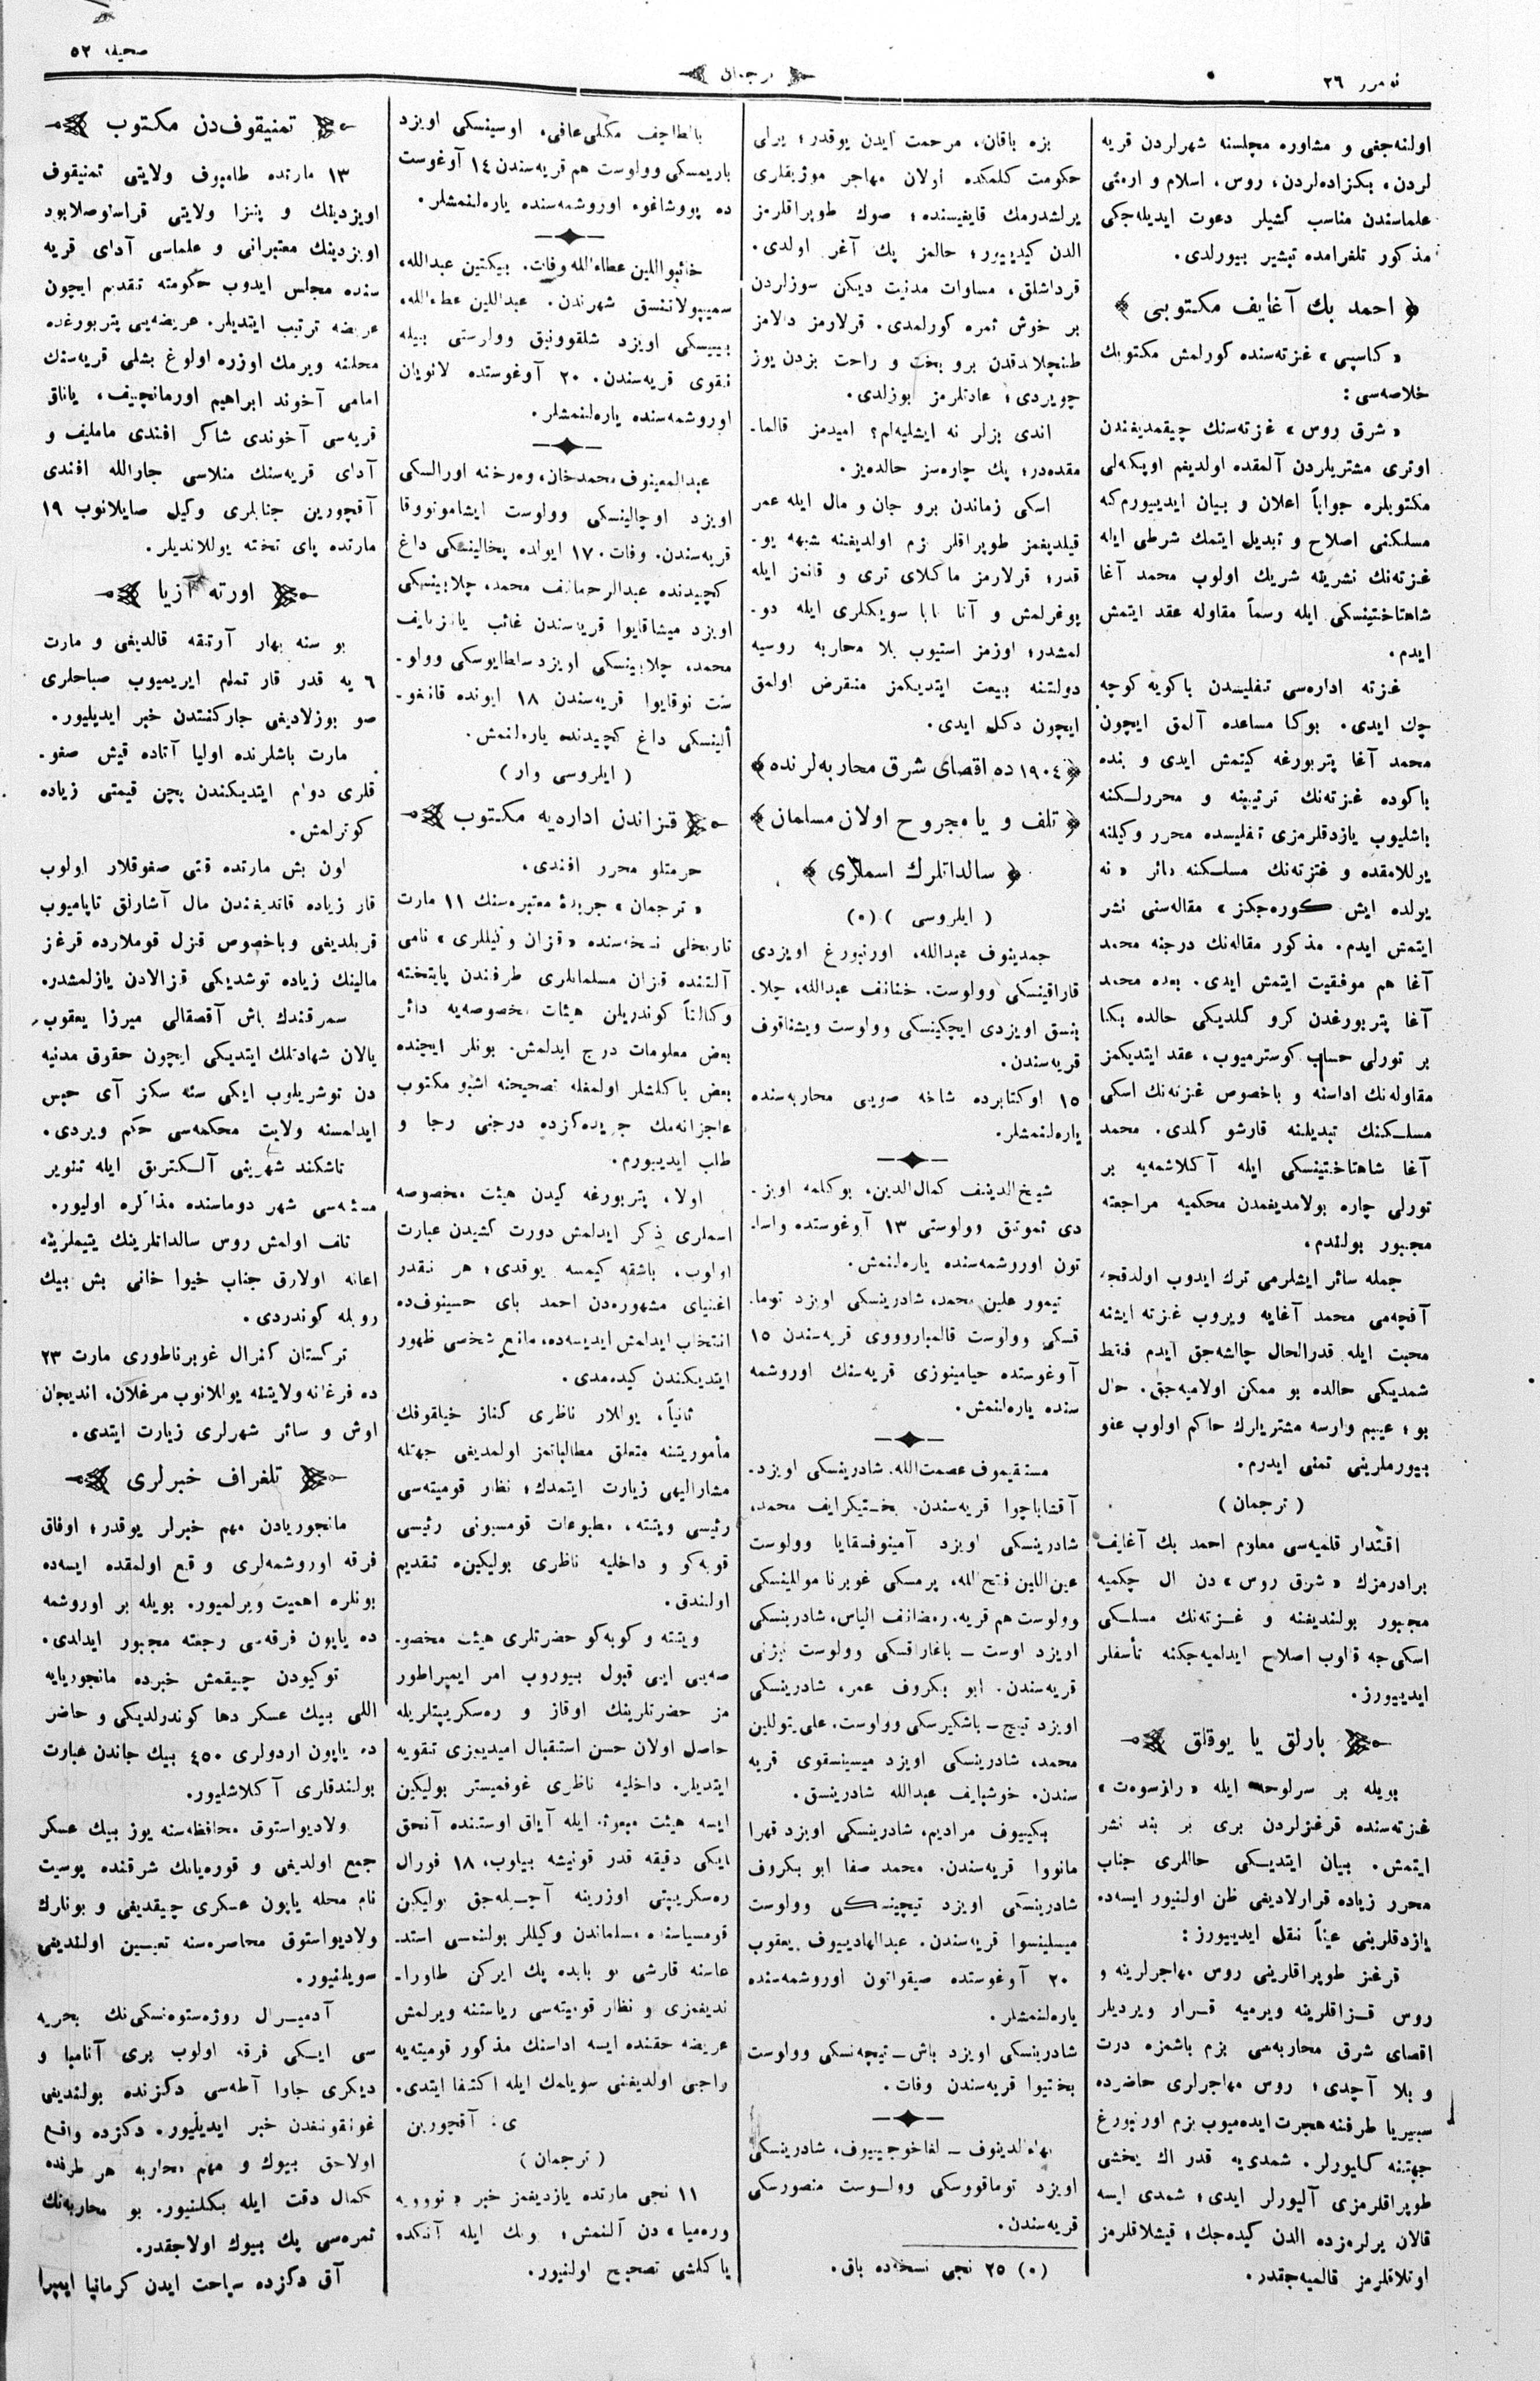 نومرر ٢٦
ترجمان
صحیفه ٥٢
اولنه‌جغی و مشاوره مجلسنه شهرلردن قریه
لردن، بكزاده‌لردن، روس، اسلام و ارمنی
علماسندن مناسب كشیلر دعوت ایدیله‌جكی
مذكور تلغرامده تبشیر بیورلدی.
﴿ احمد بك آغایف مكتوبی ﴾
« كاسپی » غزته‌سنده كورلمش مكتوبك
خلاصه‌سی :
« شرق روس » غزته‌سنك چیقمدیغندن
اوتری مشتریلردن آلمقده اولدیغم اوپكه‌لی
مكتوبلره جواباً اعلان و بیان ایدییورم‌كه
مسلكنی اصلاح و تبدیل ایتمك شرطی ایله
غزته‌نك نشرینه شریك اولوب محمد آغا
شاهتاختینسكی ایله رسماً مقاوله عقد ایتمش
ایدم.
غزته اداره‌سی تفلیسدن باكویه كوچه
جك ایدی. بوكا مساعده آلمق ایچون
محمد آغا پتربورغه كیتمش ایدی و بنده
باكوده غزته‌نك ترتیبنه و محررلكنه
باشلیوب یازدقلرمزی تفلیسده محرر وكیلنه
یوللامقده و غزته‌نك مسلكنه دائر « نه
یولده ایش كوره‌جكز » مقاله‌سنی نشر
ایتمش ایدم. مذكور مقاله‌نك درجنه محمد
آغا هم موفقیت ایتمش ایدی. بعده محمد
آغا پتربورغدن كرو كلدیكی حالده بكا
بر تورلی حساب كوسترمیوب، عقد ایتدیكمز
مقاوله‌نك اداسنه و باخصوص غزته‌نك اسكی
مسلكنك تبدیلنه قارشو كلدی. محمد
آغا شاهتاختینسكی ایله آكلاشمه‌یه بر
تورلی چاره بولامدیغمدن محكمیه مراجعته
مجبور بولندم.
جمله سائر ایشلرمی ترك ایدوب اولدقجه
آقچه‌می محمد آغایه ویروب غزته ایشنه
محبت ایله قدرالحال چالشه‌جق ایدم فقط
شمدیكی حالده بو ممكن اولامیه‌جق. حال
بو ؛ عیبم وارسه مشتریلرك حاكم اولوب عفو
بیورملرینی تمنی ایدرم.
( ترجمان )
اقتدار قلمیه‌سی معلوم احمد بك آغایف
برادرمزك « شرق روس » دن ال چكمیه
مجبور بولندیغنه و غزته‌نك مسلكی
اسكی‌جه قالوب اصلاح ایدلمیه‌جكنه تأسفلر
ایدییورز.
بارلق یا یوقلق
بویله بر سرلوحه ایله « رازسوه‌ت »
غزته‌سنده قرغزلردن بری بر بند نشر
ایتمش. بیان ایتدیكی حاللری جناب
محرر زیاده قرارلادیغی ظن اولنیور ایسه‌ده
یازدقلرینی عیناً نقل ایدییورز :
قرغز طوپراقلرینی روس مهاجرلرینه و
روس قزاقلرینه ویرمیه قرار ویردیلر
اقصای شرق محاربه‌سی بزم باشمزه درت
و بلا آچدی ؛ روس مهاجرلری حاضرده
سبیریا طرفنه هجرت ایده‌میوب بزم اورنبورغ
جهتنه كلیورلر. شمدی‌یه قدر اك یخشی
طوپراقلرمزی آلیورلر ایدی ؛ شمدی ایسه
قالان یرلرمزده الدن كیده‌جك ؛ قیشلاقلرمز
اوتلاقلرمز قالمیه‌جقدر.
بزه باقان، مرحمت ایدن یوقدر ؛ یرلی
حكومت كلمكده اولان مهاجر موژیقلری
یرلشدرمك قایغیسنده ؛ صوك طوپراقلرمز
الدن كیدییور ؛ حالمز پك آغر اولدی.
قرداشلق، مساوات مدنیت دیكن سوزلردن
بر خوش ثمره كورلمدی. قرلارمز دالامز
طنچلاندقدن برو بخت و راحت بزدن یوز
چویردی ؛ عادتلرمز بوزلدی.
اندی بزلر نه ایشلیه‌لم؟ امیدمز قالما-
مقده‌در ؛ پك چاره‌سز حالده‌یز.
اسكی زماندن برو جان و مال ایله عمر
قیلدیغمز طوپراقلر بزم اولدیغنه شبهه یو-
قدر ؛ قرلارمز ماكلای تری و قانمز ایله
یوغرلمش و آتا بابا سویكلری ایله دو-
لمشدر ؛ اوزمز استیوب بلا محاربه روسیه
دولتنه بیعت ایتدیكمز منقرض اولمق
ایچون دكل ایدی.
﴿ ١٩٠٤ ده اقصای شرق محاربه‌لرنده ﴾
﴿ تلف و یا مجروح اولان مسلمان ﴾
﴿ سالداتلرك اسملری ﴾
( ایلروسی ) (٥)
جمدینوف عبدالله، اورنبورغ اویزدی
قاراقینسكی وولوست. خنانف عبدالله، چلا-
بنسق اویزدی ایچكینسكی وولوست ویشناقوف
قریه‌سندن.
١٥ اوكتابرده شاخه صویی محاربه‌سنده
یاره‌لنمشلر.
شیخ‌الدینف كمال‌الدین، بوكلمه اویز-
دی تموتنق وولوستی ١٣ آوغوستده واسا-
تون اوروشمه‌سنده یاره‌لنمش.
تیمور علین محمد، شادرینسكی اویزد توما-
قسكی وولوست قالمباروووی قریه‌سندن ١٥
آوغوستده حیامینوزی قریه‌سنك اوروشمه
سنده یاره‌لنمش.
مستقیموف عصمت‌الله. شادرینسكی اویزد-
آقشاباچوا قریه‌سندن. بختیكرایف محمد،
شادرینسكی اویزد آمینوفسقایا وولوست
عین‌اللین فتح‌الله، پرمسكی غوبرنا مواللینسكی
وولوست هم قریه. رمضانف الیاس، شادرینسكی
اویزد اوست ـ باغاراقسكی وولوست بژنی
قریه‌سندن. ابو بكروف عمر، شادرینسكی
اویزد تیچ ـ باشكیرسكی وولوست. علی یتوللین
محمد، شادرینسكی اویزد میسینسقوی قریه
سندن. خوشبایف عبدالله شادرینسق.
بكییوف مرادیم، شادرینسكی اویزد قهرا
مانووا قریه‌سندن. محمد صفا ابو بكروف
شادرینسكی اویزد تیچینسكی وولوست
میسلینسوا قریه‌سندن. عبدالهادییوف یعقوب
٢٠ آوغوستده صیقوانتون اوروشمه‌سنده
یاره‌لنمشلر.
شادرینسكی اویزد باش ـ تیچه‌نسكی وولوست
بختیوا قریه‌سندن وفات.
بهاءالدینوف ـ لفاخوجییوف، شادرینسكی
اویزد توماقووسكی وولوست منصورسكی
قریه‌سندن.
(٥) ٢٥ نجی نسخه‌ده باق.
بالطاچف مكللی‌عافی، اوسینسكی اویزد
باریمسكی وولوست هم قریه‌سندن ١٤ آوغوست
ده پروشاغو، اوروشمه‌سنده یاره‌لنمشلر.
خائبواللین عطاءالله وفات. بیكتین عبدالله،
سمیپولاتنسق شهرندن. عبداللین عطاءالله،
بییسكی اویزد شلقوونیق وولوستی بیله
نقوی قریه‌سندن. ٢٠ آوغوستده لانویان
اوروشمه‌سنده یاره‌لنمشلر.
عبدالمعینوف محمدخان، وه‌رخنه اورالسكی
اویزد اوچالینسكی وولوست ایشامونووقا
قریه‌سندن. وفات. ١٧ ایولده یخالینسكی داغ
كچیدنده عبدالرحمانف محمد، چلابینسكی
اویزد میشاقایوا قریه‌سندن غائب یانزبایف
محمد، چلابینسكی اویزد سلطایوسكی وولو-
ست نوقایوا قریه‌سندن ١٨ ایونده قانغو-
ألینسكی داغ كچیدنده یاره‌لنمش.
( ایلروسی وار )
قزاندن اداره‌یه مكتوب
حرمتلو محرر افندی.
« ترجمان » جریدهٔ معتبره‌سنك ١١ مارت
تاریخلی نسخه‌سنده « قزان وكیللری » نامی
آلتنده قزان مسلمانلری طرفندن پایتخته
وكالتاً كوندریلن هیئات مخصوصه‌یه دائر
بعض معلومات درج ایدلمش. بونلر ایچنده
بعض یاكلشلر اولمغله تصحیحنه اشبو مكتوب
عاجزانه‌مك جریده‌كزده درجنی رجا و
طلب ایدییورم.
اولا، پتربورغه كیدن هیئت مخصوصه
اسملری ذكر ایدلمش دورت كشیدن عبارت
اولوب، باشقه كیمسه یوقدی ؛ هر نقدر
اغنیای مشهوره‌دن احمد بای حسینوف‌ده
انتخاب ایدلمش ایدیسه‌ده، مانع شخصی ظهور
ایتدیكندن كیده‌مدی.
ثانیاً، یوللار ناظری كناز خیلقوفك
مأموریتنه متعلق مطالباتمز اولمدیغی جهتله
مشارالیهی زیارت ایتمدك ؛ نظار قومیته‌سی
رئیسی ویتته، مطبوعات قومسیونی رئیسی
قوبه‌كو و داخلیه ناظری بولیكینه تقدیم
اولندق.
ویتته و كوبه‌كو حضرتلری هیئت مخصو-
صه‌یی ایی قبول بیوروب امر ایمپراطور
مز حضرتلرینك اوقاز و ره‌سكریپتلریله
حاصل اولان حسن استقبال امیدیمزی تقویه
ایتدیلر. داخلیه ناظری غوفمیستر بولیكین
ایسه هیئت مبعوثه ایله آیاق اوستنده آنجق
ایكی دقیقه قدر قونیشه بیلوب، ١٨ فورال
ره‌سكریپتی اوزرینه آچیله‌جق بولیكین
قومسیاسنده مسلماندن وكیللر بولنمسی استد-
عاسنه قارشی بو بابده پك ایركن طاورا-
ندیغمزی و نظار قومیته‌سی ریاستنه ویرلمش
عریضه حقنده ایسه اداسنك مذكور قومیته‌یه
راجع اولدیغنی سویلمك ایله اكتفا ایتدی.
ی : آقچورین
( ترجمان )
١١ نجی مارتده یازدیغمز خبر « نوویه
وره‌میا » دن آلنمش ؛ ونك ایله آنكده
یاكلشی تصحیح اولنیور.
تمنیقوف‌دن مكتوب
١٣ مارتده طامبوف ولایتی تمنیقوف
اویزدینك و پنزا ولایتی قراسنوصلابود
اویزدینك معتبرانی و علماسی آدای قریه
سنده مجلس ایدوب حكومته تقدیم ایچون
عریضه ترتیب ایتدیلر. عریضه‌یی پتربورغده
محلنه ویرمك اوزره اولوغ بشلی قریه‌سنك
امامی آخوند ابراهیم اورمانچییف، یاناق
قریه‌سی آخوندی شاكر افندی ماملیف و
آدای قریه‌سنك منلاسی جارالله افندی
آقچورین جنابلری وكیل صایلانوب ١٩
مارتده پای تخته یوللاندیلر.
اورته آزیا
بو سنه بهار آرتقه قالدیغی و مارت
٦ یه قدر قار تمام ایریمیوب صباحلری
صو بوزلادیغی جاركنتدن خبر ایدیلیور.
مارت باشلرنده اولیا آتاده قیش صغو-
قلری دوام ایتدیكندن پچن قیمتی زیاده
كوترلمش.
اون بش مارتده قتی صغوقلار اولوب
قار زیاده قاتدیغندن مال آشارلق تاپامیوب
قریلدیغی و باخصوص قزل قوملارده قرغز
مالینك زیاده توشدیكی قزالادن یازلمشدر.
سمرقندك باش آقصقالی میرزا یعقوب
یالان شهادتلك ایتدیكی ایچون حقوق مدنیه
دن توشریلوب ایكی سنه سكز آی حبس
ایدلمسنه ولایت محكمه‌سی حكم ویردی.
تاشكند شهرینی آلكتریق ایله تنویر
مسئله‌سی شهر دوماسنده مذاكره اولیور.
تلف اولمش روس سالداتلرینك یتیملرینه
اعانه اولارق جناب خیوا خانی بش بیك
روبله كوندردی.
تركستان كنرال غوبرناطوری مارت ٢٣
ده فرغانه ولایتنه یوللانوب مرغلان، اندیجان
اوش و سائر شهرلری زیارت ایتدی.
تلغراف خبرلری
مانجوریادن مهم خبرلر یوقدر ؛ اوفاق
فرقه اوروشمه‌لری وقع اولمقده ایسه‌ده
بونلره اهمیت ویرلمیور. بویله بر اوروشمه
ده یاپون فرقه‌سی رجعته مجبور ایدلدی.
توكیودن چیقمش خبرده مانجوریایه
اللی بیك عسكر دها كوندرلدیكی و حاضر
ده یاپون اردولری ٤٥٠ بیك جاندن عبارت
بولندقلری آكلاشلیور.
ولادیواستوق محافظه‌سنه یوز بیك عسكر
جمع اولدیغی و قوره‌یانك شرقنده پوسیت
نام محله یاپون عسكری چیقدیغی و بونلرك
ولادیواستوق محاصره‌سنه تعیین اولندیغی
سویلنیور.
آدمیرال روژه‌ستوه‌نسكی‌نك بحریه
سی ایكی فرقه اولوب بری آنامبا و
دیكری جاوا آطه‌سی دكزنده بولندیغی
غونقونغدن خبر ایدیلیور. دكزده واقع
اولاجق بیوك و مهم محاربه هر طرفده
كمال دقت ایله بكلنیور. بو محاربه‌نك
ثمره‌سی پك بیوك اولاجقدر.
آق دكزده سیاحت ایدن كرمانیا ایمپرا